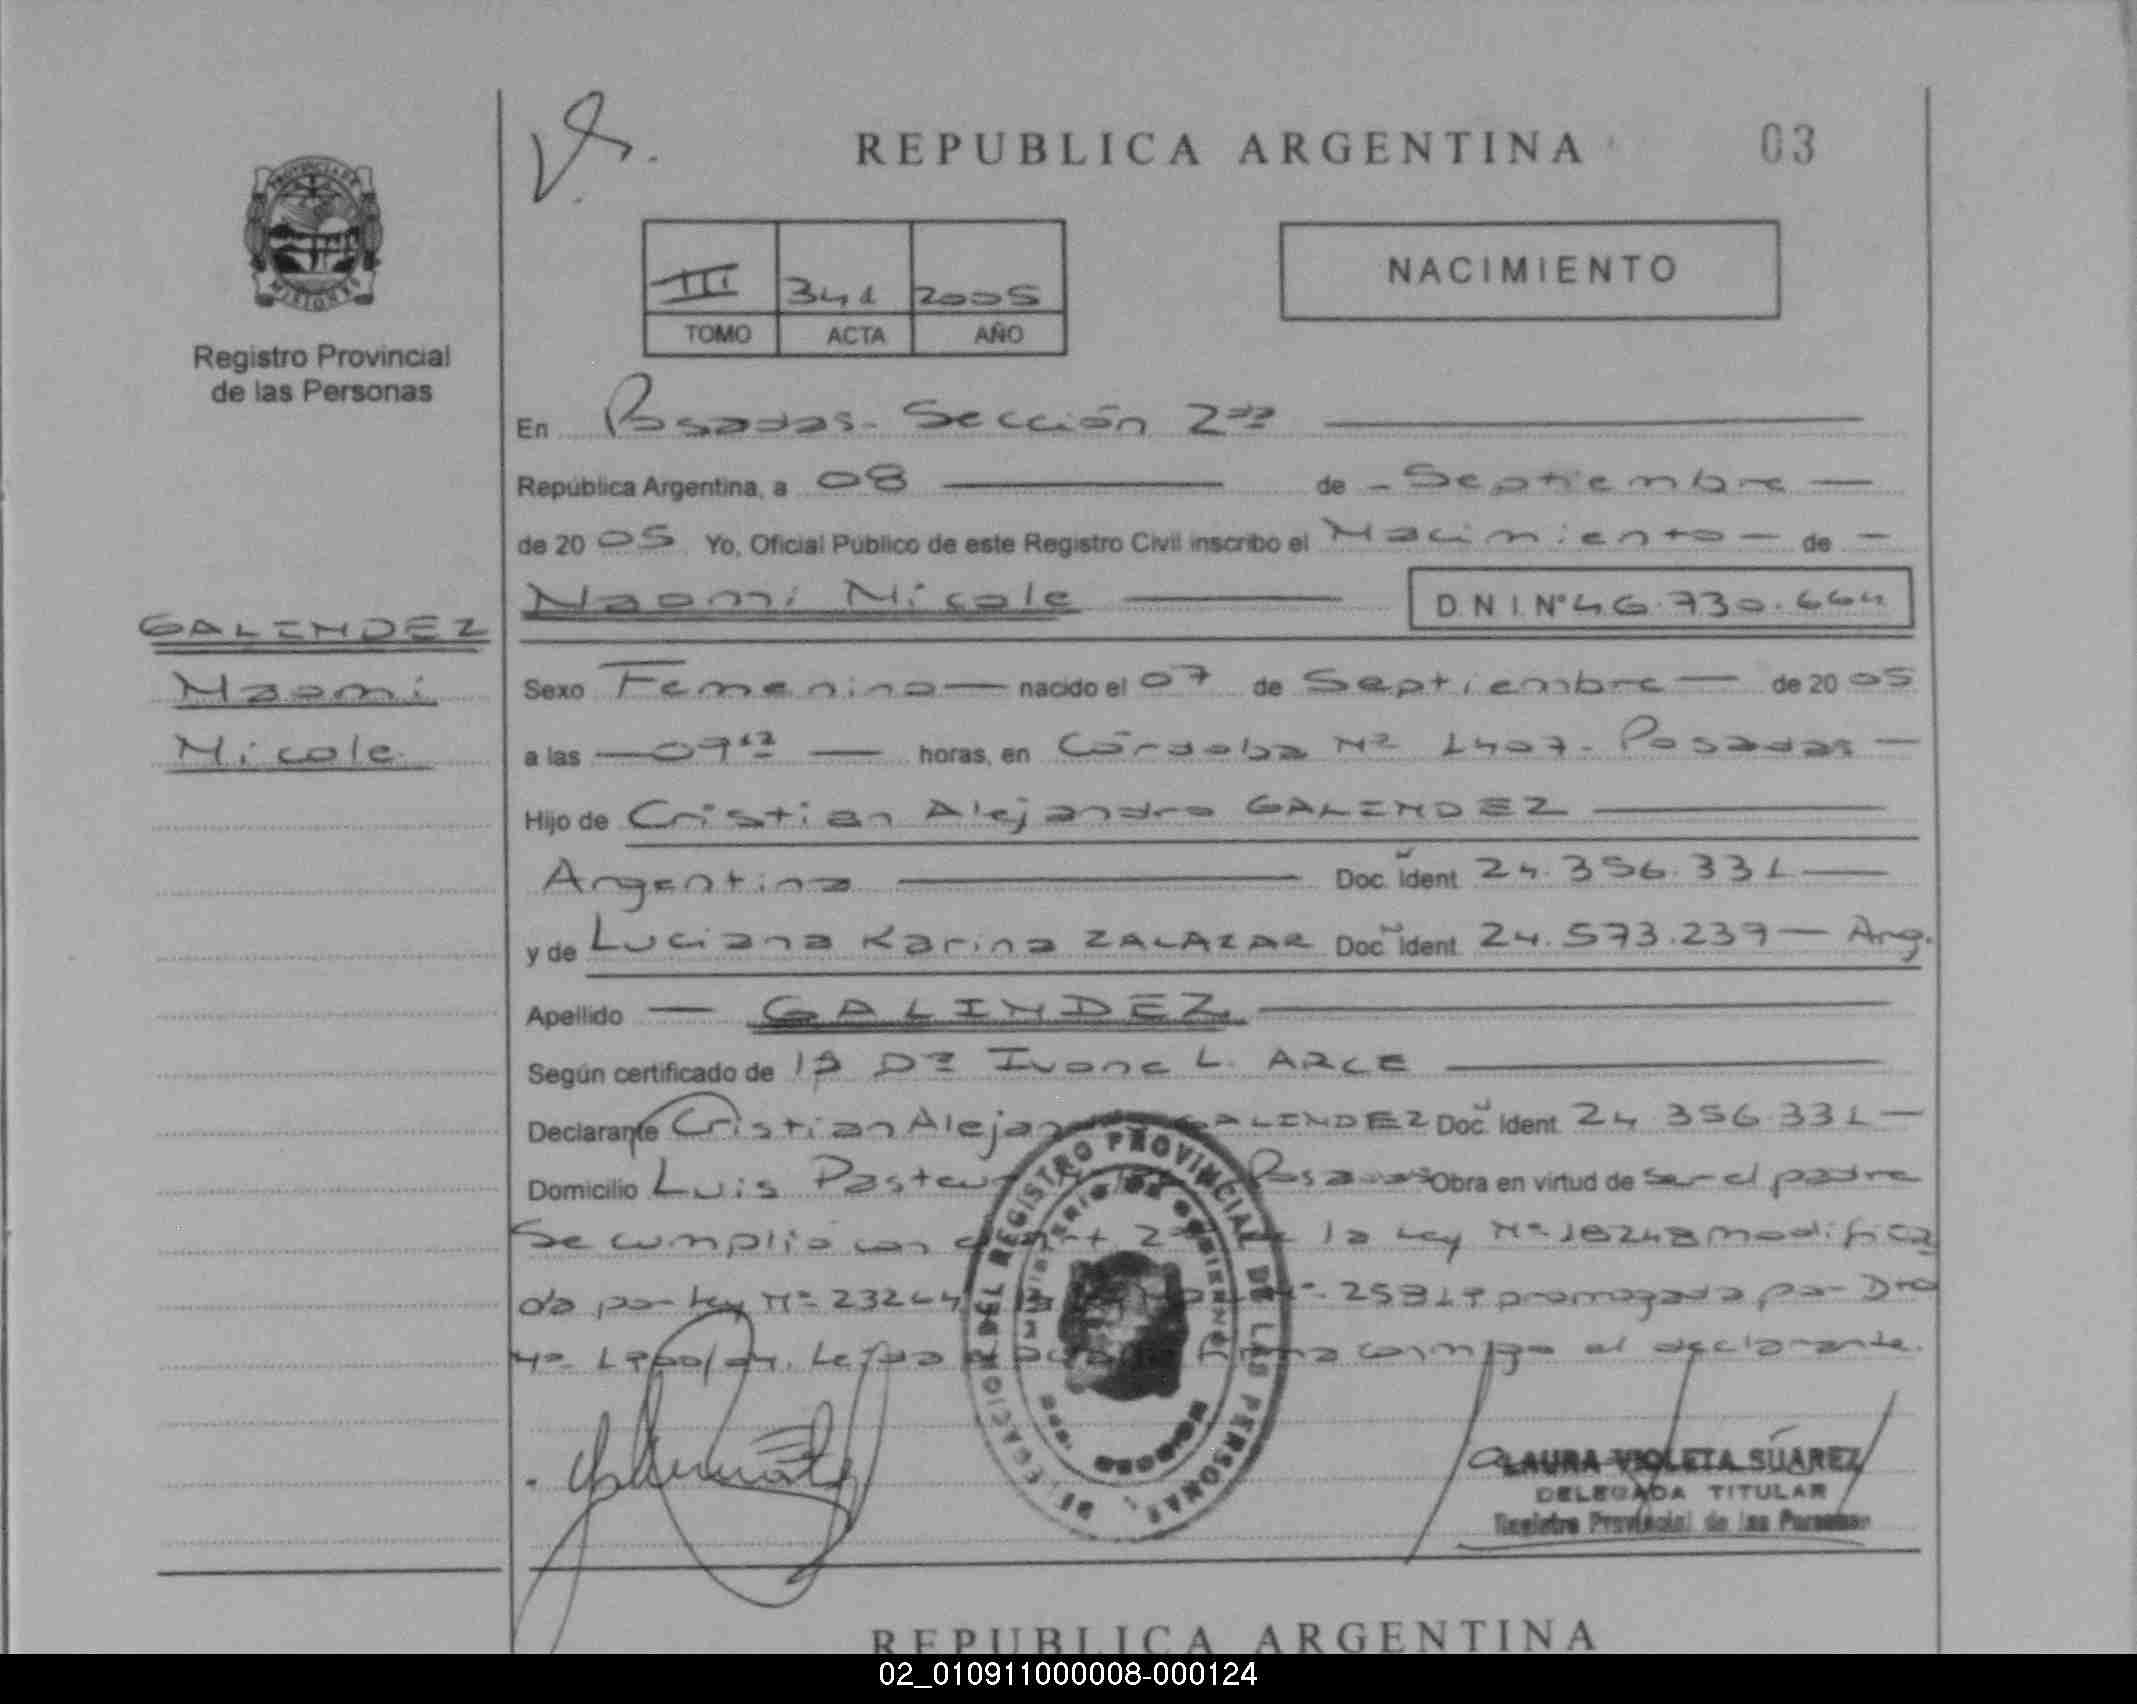 REPUBLICA ARGENTINA
03
PROVINCIA DE
MISIONES
Registro Provincial
de las Personas
III 341 2005
TOMO ACTA AÑO
NACIMIENTO
En Posadas - Sección 2da
República Argentina, a 08 de - Septiembre
de 20 05 Yo, Oficial Público de este Registro Civil inscribo el Nacimiento - de -
Naomi Nicole D N I. Nº 46.730.664
GALINDEZ
Naomi
Nicole
Sexo Femenino nacido el 07 de Septiembre de 20 05
a las 09 12 horas, en Córdoba Nº 1407 - Posadas
Hijo de Cristian Alejandro GALINDEZ
Argentino Doc. Ident 24.356.331
y de Luciana Karina ZALAZAR Doc. Ident. 24.573.239 - Arg.
Apellido GALINDEZ
Según certificado de la Dra Ivone L. ARCE
Declarante Cristian Alejan GALINDEZ Doc. Ident. 24 356.331
Domicilio Luis Pasteur Posadas Obra en virtud de ser el padre
Se cumplió con el Art 2 la Ley Nº 18248 modifica
da por Ley Nº 23264 prorrogada por Dto
Nº Leída firma conmigo el declarante.
DELEGACION REGISTRO PROVINCIAL DE LAS PERSONAS
MINISTERIO DE GOBIERNO
LAURA VIOLETA SUAREZ
DELEGADA TITULAR
Registro Provincial de las Personas
REPUBLICA ARGENTINA
02_010911000008-000124